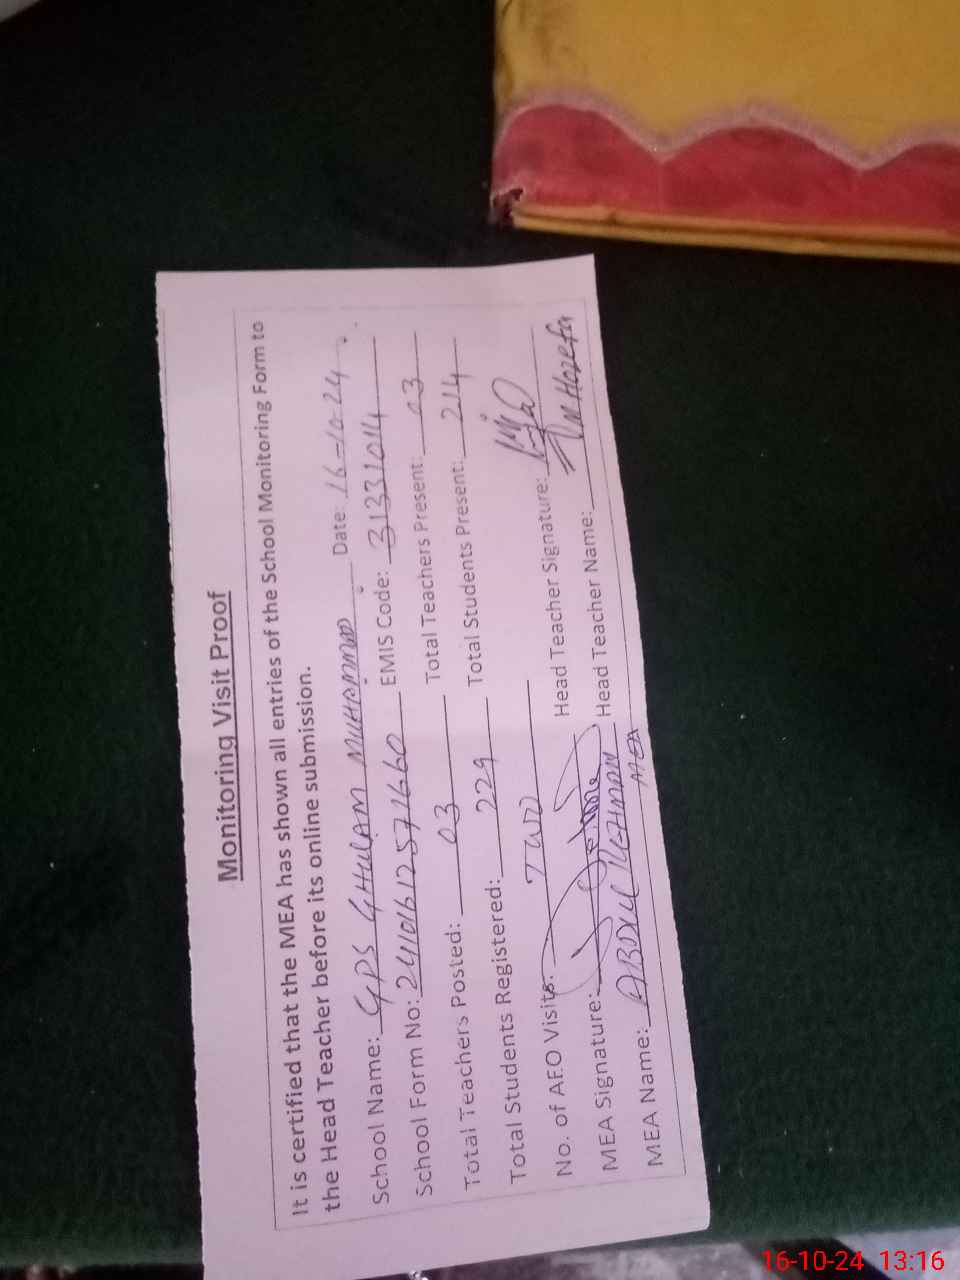 Monitoring Visit Proof
It is certified that the MEA has shown all entries of the School Monitoring Form to
the Head Teacher before its online submission.
School Name: GPS GHULAM MUHAMMAD Date: 16-10-24
School Form No: 24101612571660 EMIS Code: 31331014
Total Teachers Posted: 03 Total Teachers Present: 03
Total Students Registered: 229 Total Students Present: 214
No. of AEO Visits: TWO
MEA Signature: Head Teacher Signature:
MEA Name: ABDUL REHMAN MEA Head Teacher Name: Hozefa
16-10-24 13:16